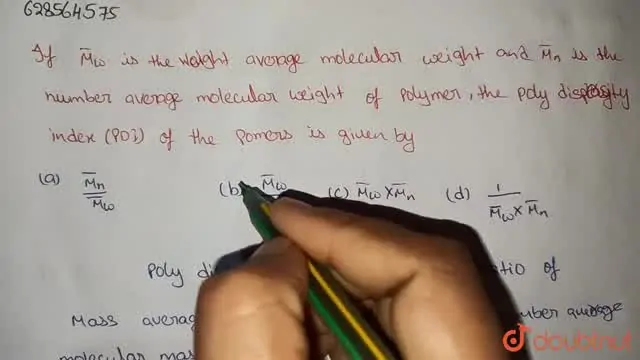 628564575
If M̅w is the weight average molecular weight and M̅n is the
number average molecular weight of polymer, the poly dispersity
index (PDI) of the pomers is given by
(a) M̅n/M̅w (b) M̅w (c) M̅w × M̅n (d) 1/M̅w × M̅n
Poly di ratio of
Mass averag number average
molecular mas
doubtnut